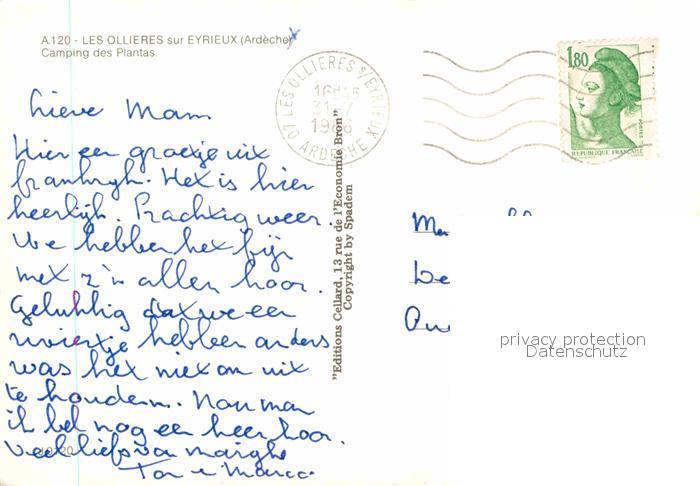 A.120 - LES OLLIERES sur EYRIEUX (Ardèche)
Camping des Plantas.
07 LES OLLIERES S/EYRIEUX
16H15
31-7
1986
ARDECHE
1,80
POSTES
REPUBLIQUE FRANÇAISE
Lieve Mam
Hier een groetje uit
frankryk. Het is hier
heerlijk. Prachtig weer.
We hebben het fijn
met z'n allen hoor.
Gelukkig dat we een
riviertje hebben anders
was het niet om uit
te houden. Nou mam
ik bel nog een keer hoor.
Veel liefs van
Ton e Marco
"Editions Cellard, 13 rue de l'Economie Bron"
Copyright by Spadem
privacy protection
Datenschutz